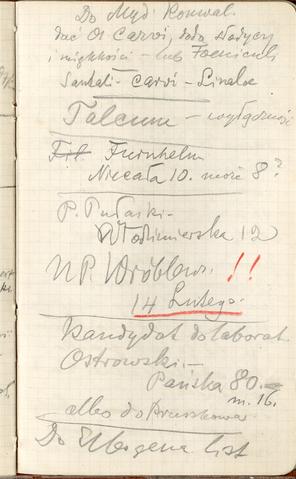 Do Mydł. Konwal.
dać Ol Carvi, doda słodyczy
i miękkości – lub Foeniculi
Santali – Carvi – Linaloe
Talcum –
Fil Furnhelm
Niecała 10. może 8?
P. Pułaski –
Włodzimierska 12
NP. Wróblew. !!
14 Lutego.
Kandydat do laborat.
Ostrowski. –
Pańska 80. –
m. 16.
albo do Pruszkowa
Do Elbigena list